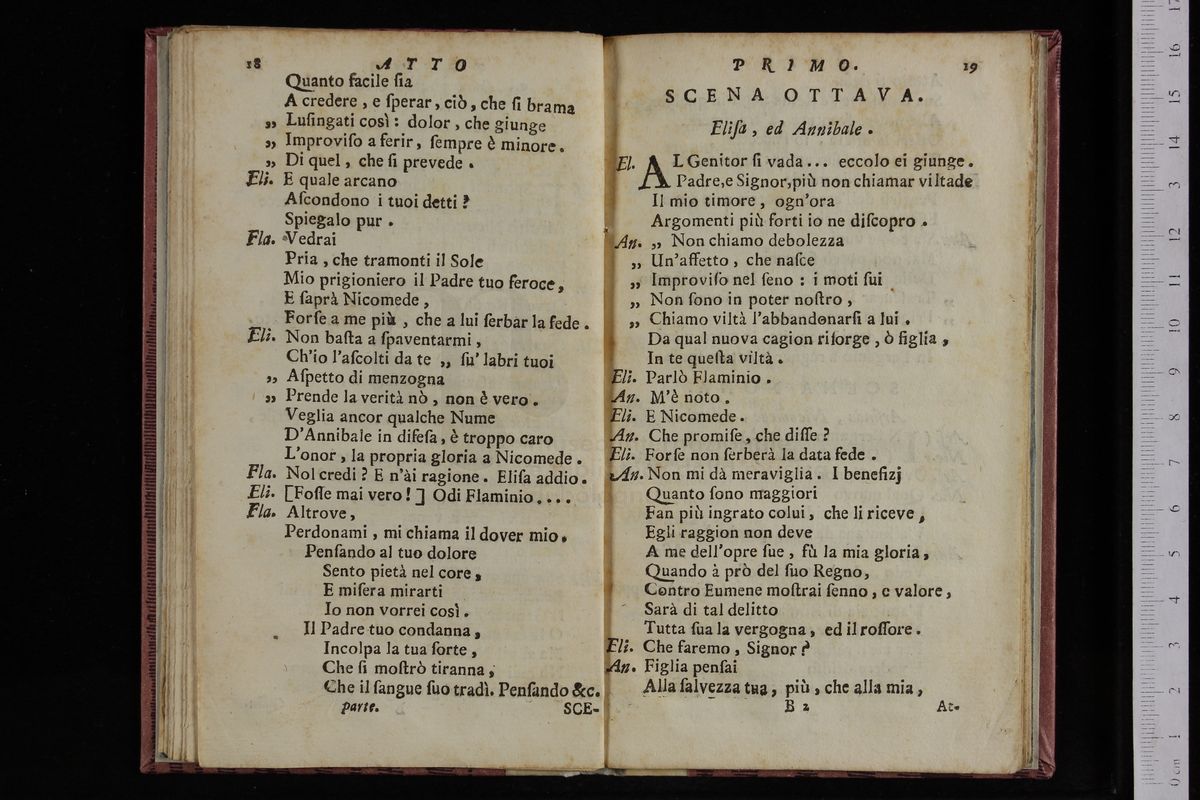 18 ATTO
Quanto facile ſia
A credere , e ſperar , ciò , che ſi brama
„ Luſingati così : dolor , che giunge
„ Improviſo a ferir , ſempre è minore .
„ Di quel , che ſi prevede .
Eli. E quale arcano
Aſcondono i tuoi detti ?
Spiegalo pur .
Fla. Vedrai
Pria , che tramonti il Sole
Mio prigioniero il Padre tuo feroce ,
E ſaprà Nicomede ,
Forſe a me più , che a lui ſerbar la fede .
Eli. Non baſta a ſpaventarmi ,
Ch'io l'aſcolti da te „ ſu' labri tuoi
„ Aſpetto di menzogna
„ Prende la verità nò , non è vero .
Veglia ancor qualche Nume
D'Annibale in difeſa , è troppo caro
L'onor , la propria gloria a Nicomede .
Fla. Nol credi ? E n'ài ragione . Eliſa addio .
Eli. [Foſſe mai vero ! ] Odi Flaminio . . . .
Fla. Altrove ,
Perdonami , mi chiama il dover mio .
Penſando al tuo dolore
Sento pietà nel core ,
E miſera mirarti
Io non vorrei così .
Il Padre tuo condanna ,
Incolpa la tua ſorte ,
Che ſi moſtrò tiranna ,
Che il ſangue ſuo tradì. Penſando &c.
parte. SCE-
PRIMO. 19
SCENA OTTAVA.
Eliſa , ed Annibale .
El. AL Genitor ſi vada . . . eccolo ei giunge .
Padre,e Signor,più non chiamar viltade
Il mio timore , ogn'ora
Argomenti più forti io ne diſcopro .
An. „ Non chiamo debolezza
„ Un'affetto , che naſce
„ Improviſo nel ſeno : i moti ſui
„ Non ſono in poter noſtro ,
„ Chiamo viltà l'abbandonarſi a lui .
Da qual nuova cagion riſorge , ò figlia ,
In te queſta viltà .
Eli. Parlò Flaminio .
An. M'è noto .
Eli. E Nicomede .
An. Che promiſe , che diſſe ?
Eli. Forſe non ſerberà la data fede .
An. Non mi dà meraviglia . I benefizj
Quanto ſono maggiori
Fan più ingrato colui , che li riceve ,
Egli raggion non deve
A me dell'opre ſue , fù la mia gloria ,
Quando à prò del ſuo Regno ,
Contro Eumene moſtrai ſenno , e valore ,
Sarà di tal delitto
Tutta ſua la vergogna , ed il roſſore .
Eli. Che faremo , Signor ?
An. Figlia penſai
Alla ſalvezza tua , più , che alla mia ,
B 2 At-